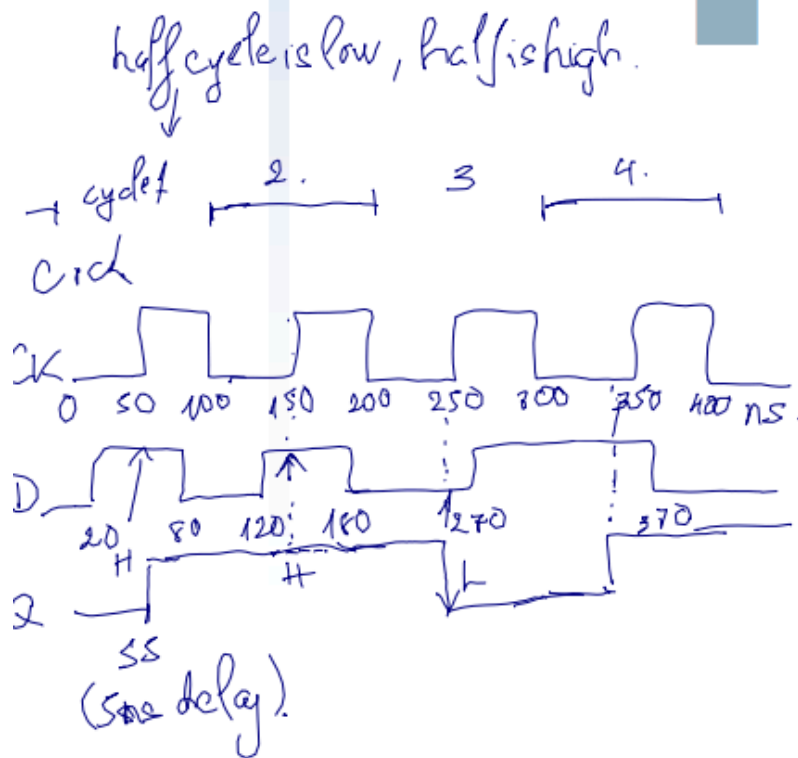 half cycle is low, half is high.
cycle 1 2. 3 4.
CK
0 50 100 150 200 250 300 350 400 ns.
D
20 80 120 180 270 370
H H L
55
(5ns delay).